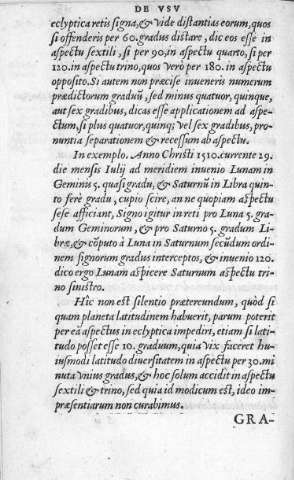 DE VSV
ecliptica retis signa,& vide distantias eorum,quos
si offenderis per 60.gradus distare, dic eos esse in
aspectu sextili, si per 90,in aspectu quarto, si per
120.in aspectu trino,quos verò per 180. in aspectu
opposito.Si autem non præcise inueneris numerum
prædictorum graduũ, sed minus quatuor, quinque,
aut sex gradibus, dicas esse applicationem ad aspe-
ctum,si plus quatuor,quinq; vel sex gradibus, pro-
nuntia separationem & recessum ab aspectu.
In exemplo. Anno Christi 1510.currente 29.
die mensis Iulij ad meridiem inuenio Lunam in
Geminis 5. quasi gradu,& Saturnũ in Libra quin-
to ferè gradu, cupio scire, an ne quopiam aspectu
sese afficiant, Signo igitur in reti pro Luna 5. gra-
dum Geminorum, & pro Saturno 5. gradum Li-
bræ,& cõputo à Luna in Saturnum secũdum ordi-
nem signorum gradus interceptos, & inuenio 120.
dico ergo Lunam aspicere Saturnum aspectu tri-
no sinistro.
Hîc non est silentio prætereundum, quòd si
quam planeta latitudinem habuerit, parum poterit
per eã aspectus in ecliptica impediri, etiam si lati-
tudo posset esse 10. graduum,quia vix faceret hu-
iusmodi latitudo diuersitatem in aspectu per 30.mi
nuta vnius gradus,& hoc solum accidit in aspectu
sextili & trino, sed quia id modicum est, ideo im-
præsentiarum non curabimus.
GRA-